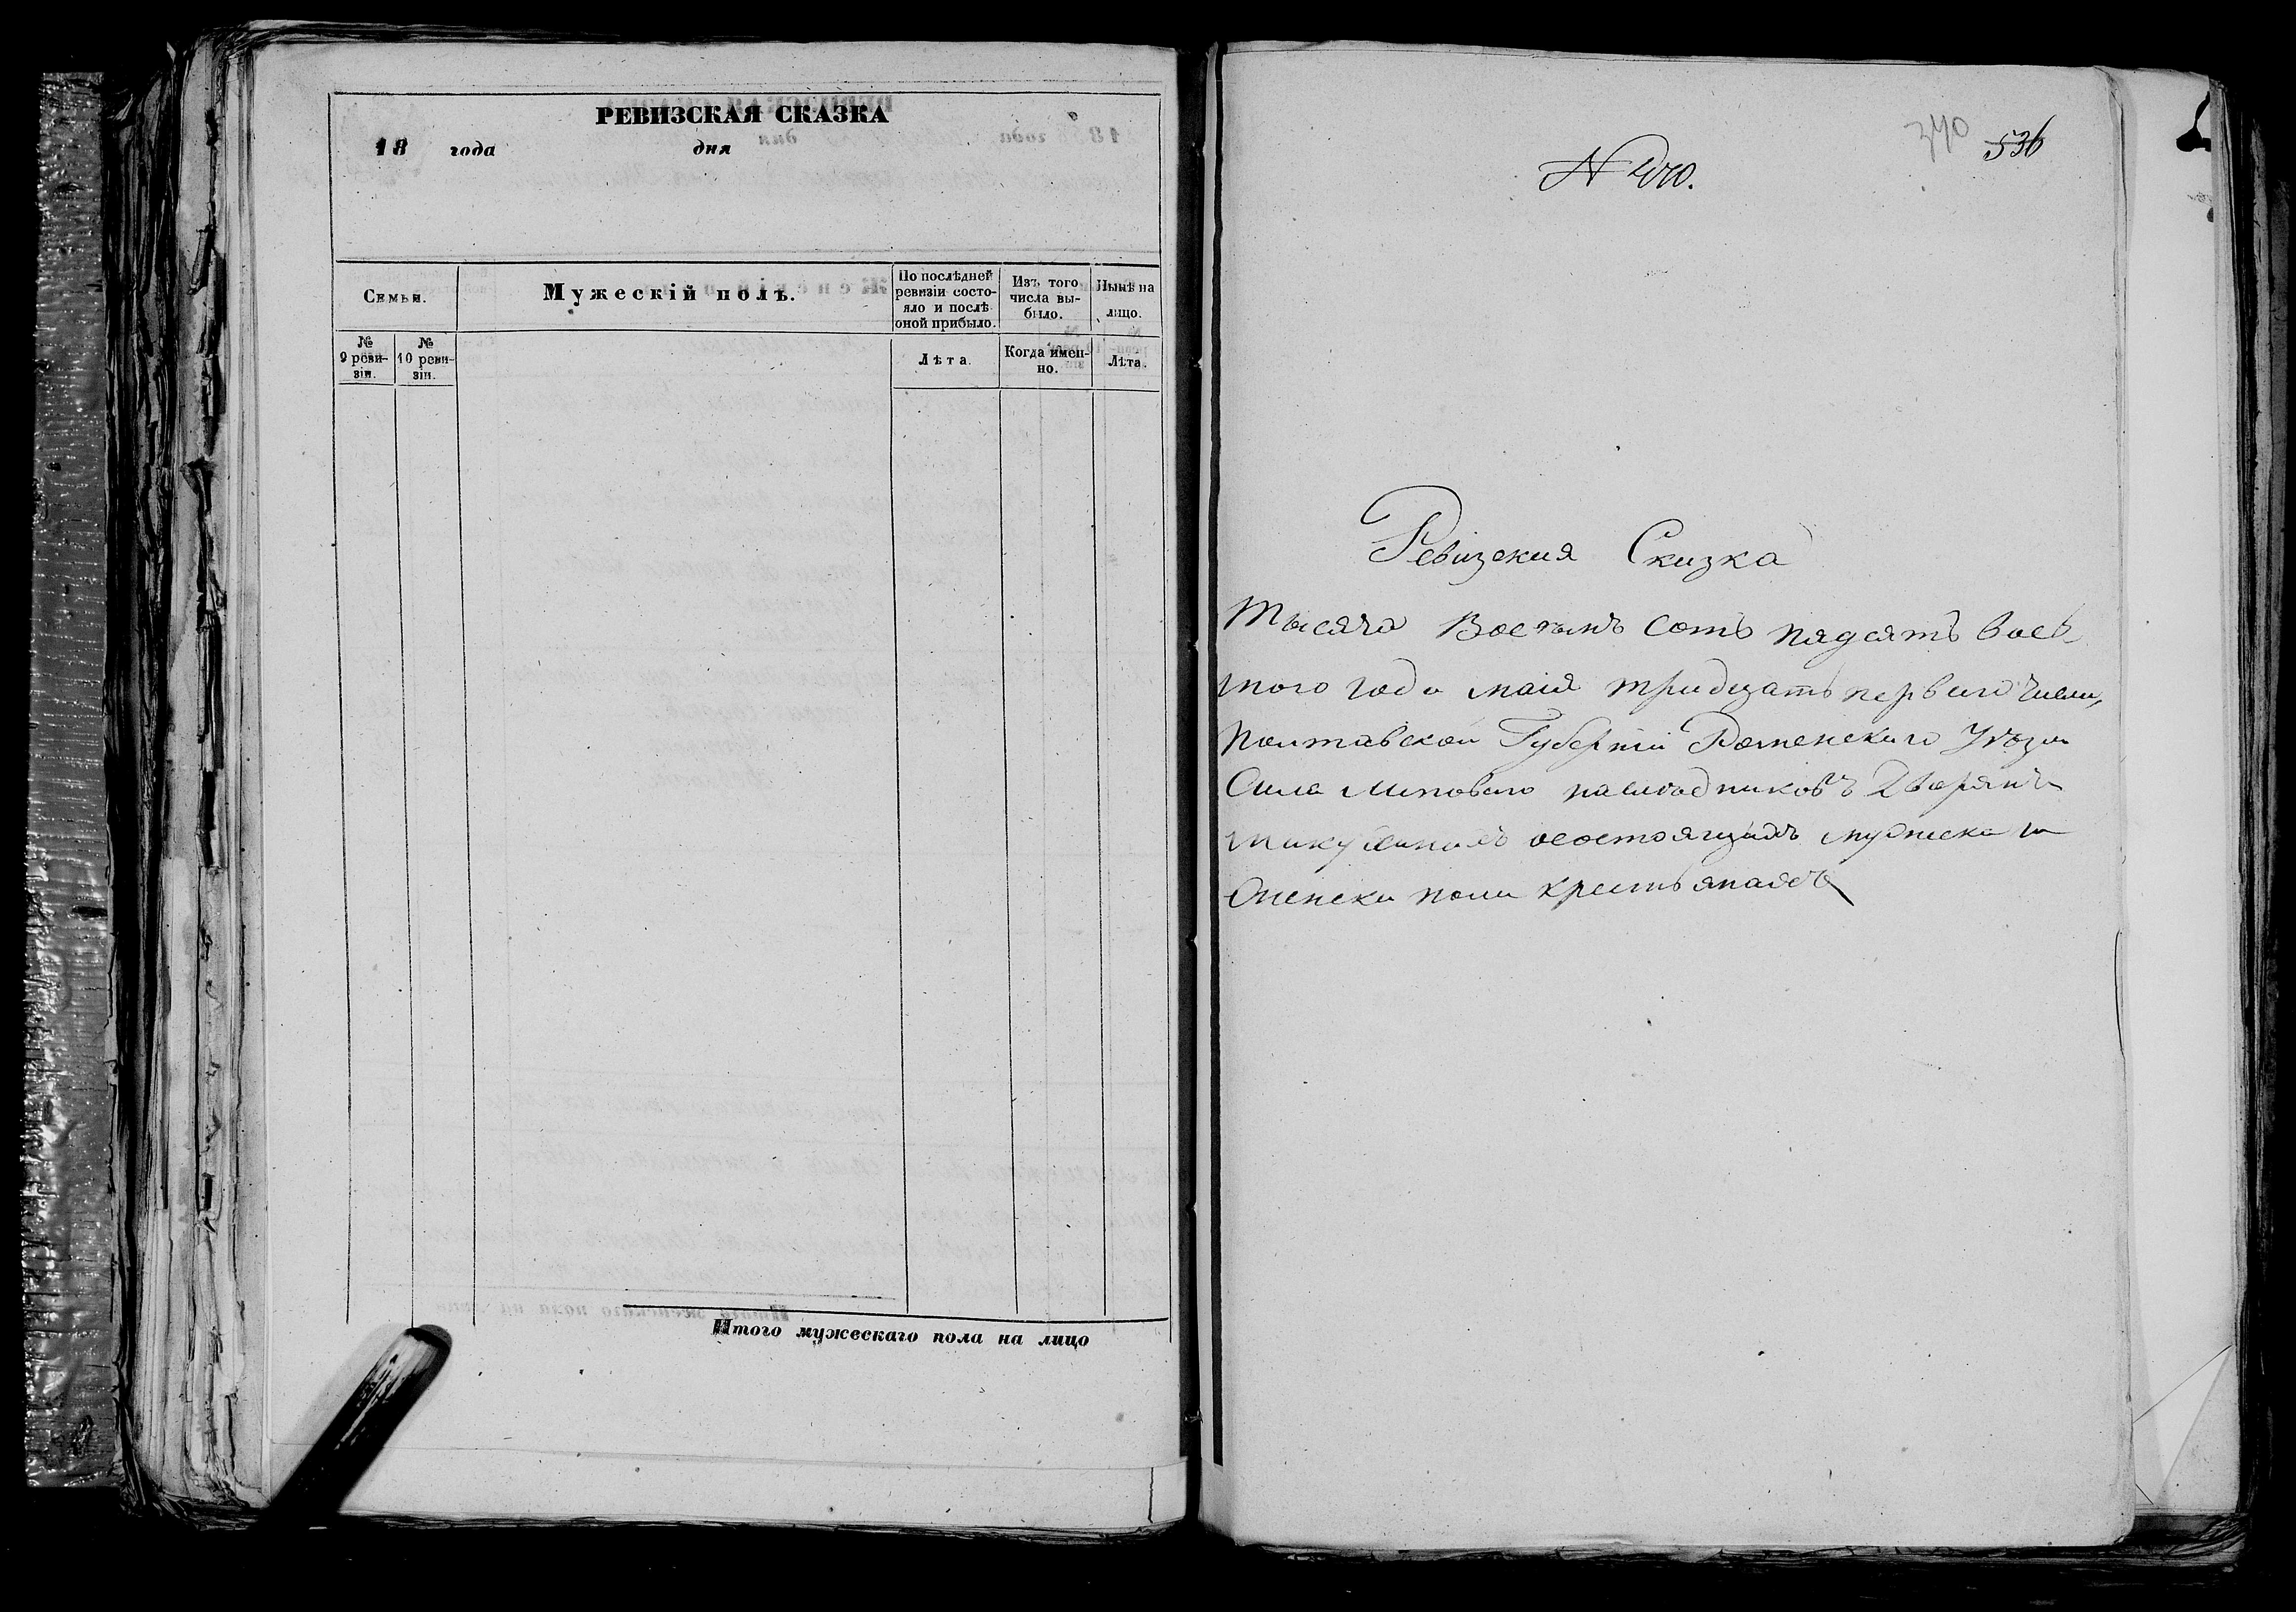 РЕВИЗСКАЯ СКАЗКА
18 года дня
Семьи.
Мужескій полъ.
По послѣдней
ревизіи состо-
яло и послѣ
оной прибыло.
Изъ того
числа вы-
было.
Нынѣ на
лицо.
№
9 реви-
зіи.
№
10 реви-
зіи.
Лѣта.
Когда имен-
но.
Лѣта.
Итого мужескаго пола на лицо
340 536
Ревизския Сказка
Тысяча Восѣмъ сотъ пядсятъ вось
мого года маія тридцать первого числа,
Полтавской Губерніи Роменского Уѣзда
Села Липового наслѣдниковъ Дворянъ
состоящихъ мужеска и
женска пола крестьянахъ